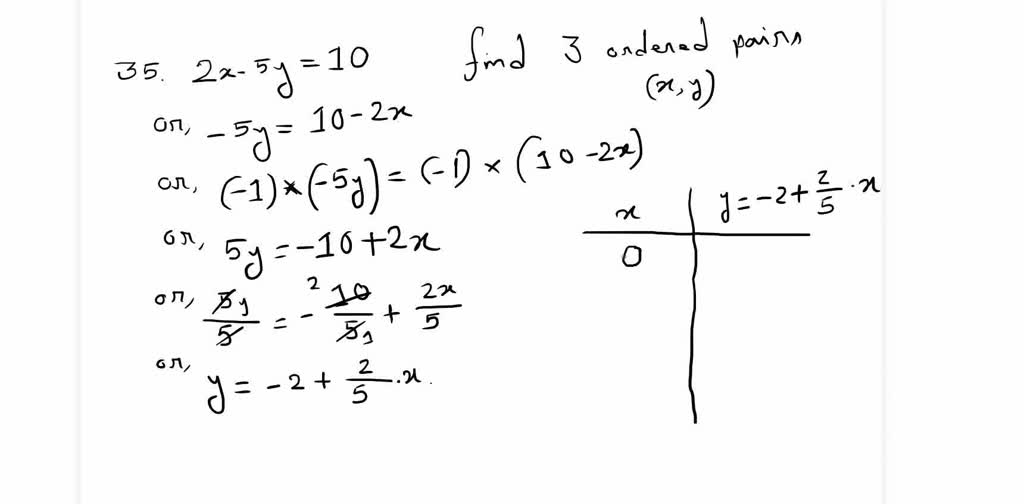 35. 2x-5y=10
find 3 ordered pairs
(x, y)
or, -5y= 10-2x
or, (-1)×(-5y)= (-1)×(10-2x)
or, 5y=-10+2x
or, 5y/5 = - 2 10/5 1 + 2x/5
or, y= -2 + 2/5 .x.
x | y=-2+ 2/5 .x
0